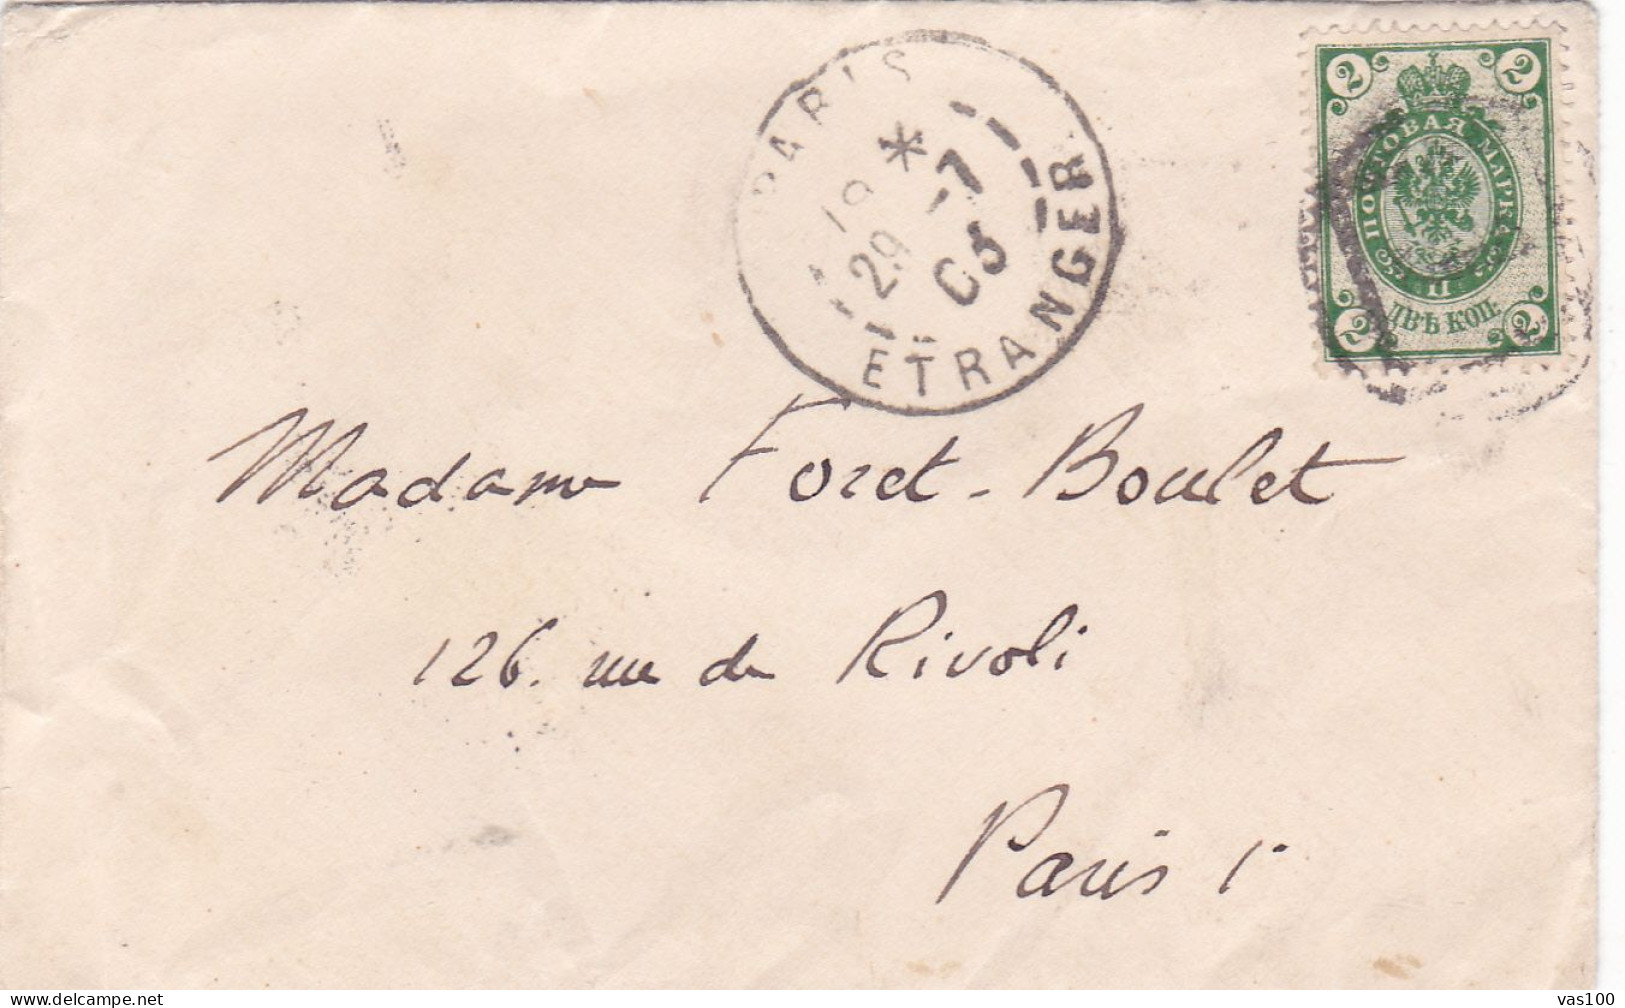 PARIS
*
18
29 -7
03
ETRANGER
2 2
ПОЧТОВАЯ МАРКА
ДВѢ КОП.
2 2
Madame Foret-Boulet
126. rue de Rivoli
Paris 1r
vas100